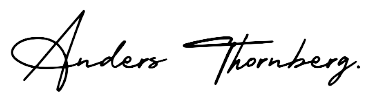 Anders Thornberg.